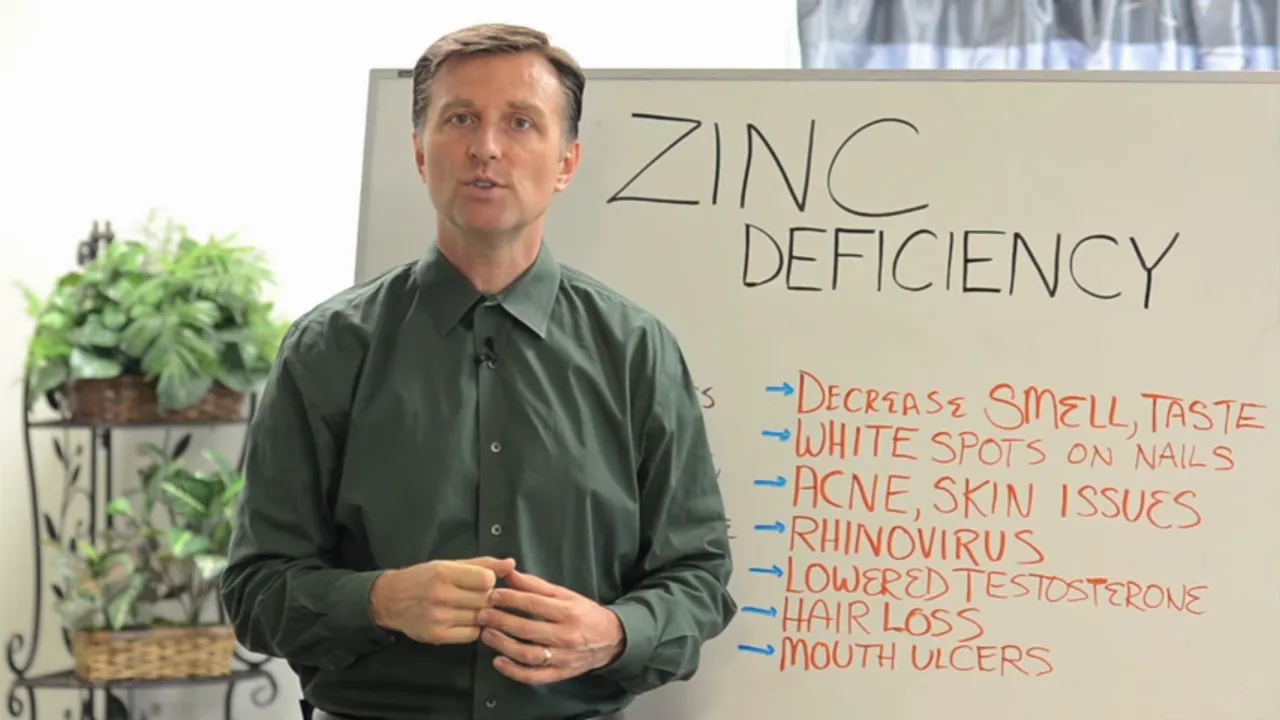 ZINC
DEFICIENCY
DECREASE SMELL, TASTE
WHITE SPOTS ON NAILS
ACNE, SKIN ISSUES
RHINOVIRUS
LOWERED TESTOSTERONE
HAIR LOSS
MOUTH ULCERS